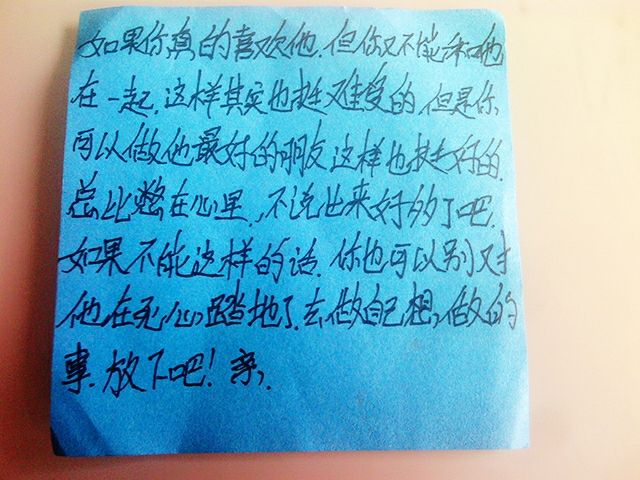 如果你真的喜欢他.但你又不能和他
在一起.这样其实也挺难受的.但是你
可以做他最好的朋友这样也挺好的.
总比憋在心里.不说出来好多了吧.
如果不能这样的话.你也可以别对
他在死心踏地了.去做自己想做的
事.放下吧!亲.